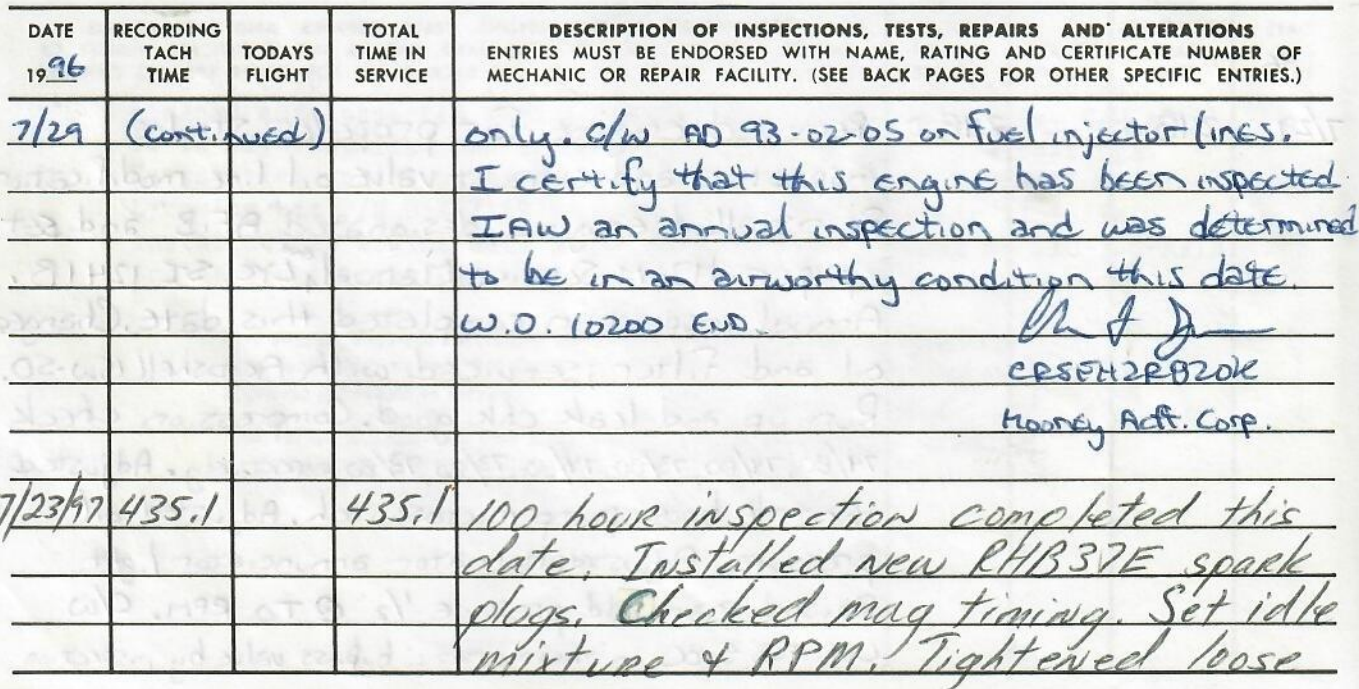 DATE RECORDING TOTAL DESCRIPTION OF INSPECTIONS, TESTS, REPAIRS AND ALTERATIONS
TACH TODAYS TIME IN ENTRIES MUST BE ENDORSED WITH NAME, RATING AND CERTIFICATE NUMBER OF
1996 TIME FLIGHT SERVICE MECHANIC OR REPAIR FACILITY. (SEE BACK PAGES FOR OTHER SPECIFIC ENTRIES.)
7/29 (continued) only. C/W AD 93-02-05 on fuel injector lines.
I certify that this engine has been inspected
IAW an annual inspection and was determined
to be in an airworthy condition this date.
W.O. 10200 END.
CRSEH2RB20K
Mooney Acft. Corp.
7/23/97 435.1 435.1 100 hour inspection completed this
date. Installed new RHB37E spark
plugs. Checked mag timing. Set idle
mixture & RPM. Tightened loose